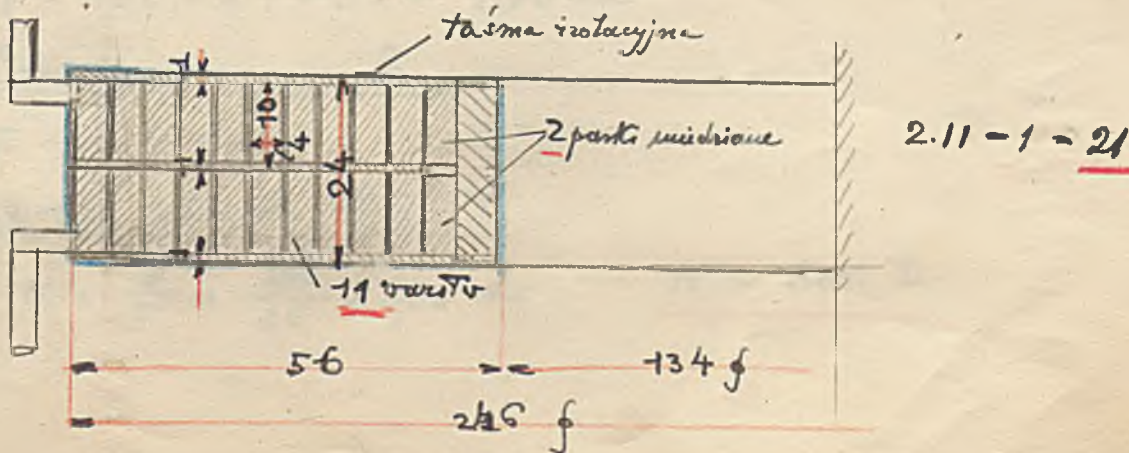 taśma izolacyjna
1
10
24
2 paski miedziane
2.11 - 1 = 21
1
1
11 warstw
56
134 ∮